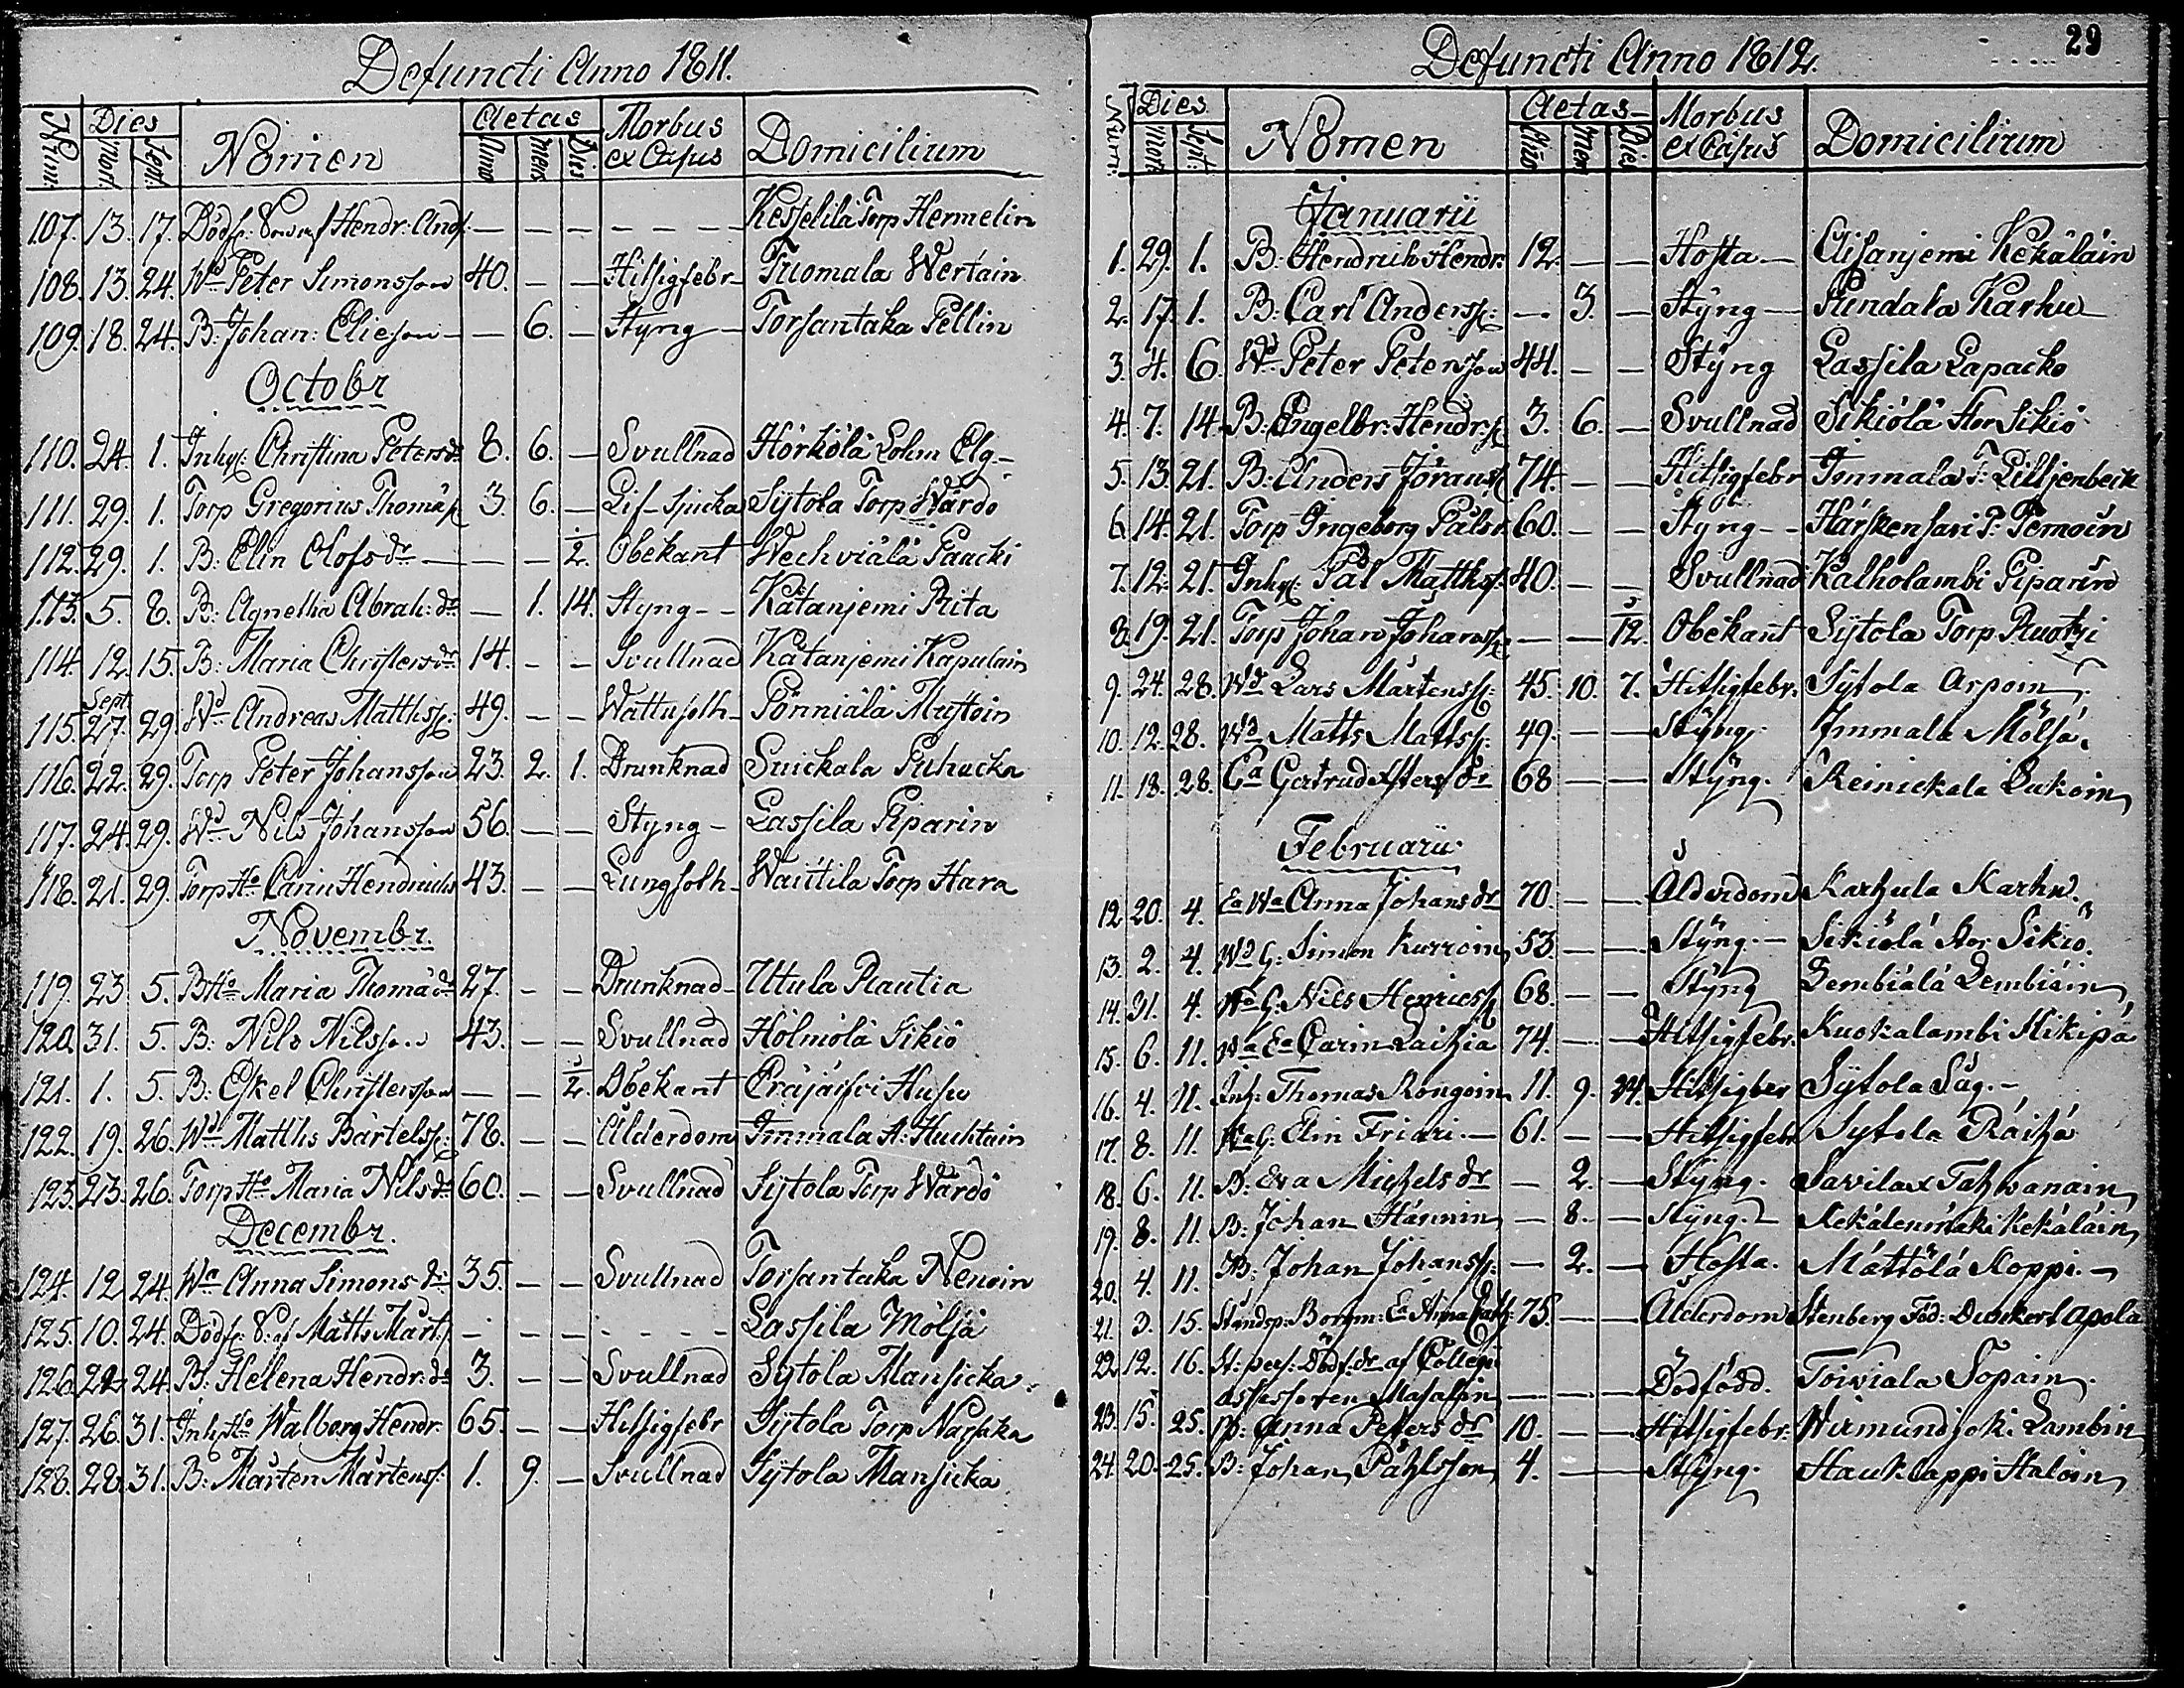 Defuncti Anno 1811.
Num. Dies Mort. Sept. Nomen Aetas Anno mens Dies Morbus ex Casus Domicilium
107. 13. 17. Dödf: Hendr: And: — — — — — Kesselila Torp Hermelin
108. 13. 24. Wd Peter Simonsson 40. — — Hitsigfebr Tuomala Wertain
109. 18. 24. B: Johan: Elieson — 6. — Styng Torsantaka Pellin
Octobr
110. 24. 1. Inhys: Christina Petersdr 8. 6. — Svullnad Hörkölä Lohm Elg
111. 29. 1. Torp Gregorius Thomæs: 3. 6. — Lif-sjucka Sytola Torp Wärdö
112. 29. 1. B: Elin Olofsdr — — 1/2. Obekant Wechviälä Paacki
113. 5. 8. B: Agnetha Abrah: dr — 1. 14. Styng Kätanjemi Rita
114. 12. 15. B: Maria Christersdr 14. — — Svullnad Kätanjemi Kapulain
115. Sept 27. 29. Wd Andreas Matthss: 49. — — Wattusoth Pönniälä Mustoin
116. 22. 29. Torp Peter Johansson 23. 2. 1. Drunknad Suickala Puhacka
117. 24. 29. Wd Nils Johansson 56. — — Styng Lassila Piparin
118. 21. 29. Torp Ho Carin Hendrichs 43. — — Lungsoth Waittila Torp Hara
Novembr.
119. 23. 5. B Ho Maria Thomædr 27. — — Drunknad Uttula Rautia
120. 31. 5. B: Nils Nilsson 43. — — Svullnad Hölmölä Sikiö
121. 1. 5. B: Eskel Christersson — — 1/2. Obekant Eräjärfvi Husu
122. 19. 26. Wd Matths Bärtelss: 78. — — Ålderdom Immala A: Huchtain
123. 23. 26. Torp Ho Maria Nilsdr 60. — — Svullnad Sytola Torp Wärdö
Decembr.
124. 12. 24. Wa Anna Simonsdr 35. — — Svullnad Torsantaka Nenoin
125. 10. 24. Dödf: S: af Matts Mårt: — — — — — Lassila Mölsä
126. 22. 24. B: Helena Hendr: dr 3. — — Svullnad Sytola Mansicka
127. 26. 31. Inh: Ho Walborg Hendr. 65. — — Hitsigfebr Sytola Torp Närhka
128. 28. 31. B: Mårten Mårtens: 1. 9. — Svullnad Sytola Mansicka
29
Defuncti Anno 1812.
Num: Dies Mort. Sept: Nomen Aetas Anno Mens Dies Morbus ex Casus Domicilium
Januarii
1. 29. 1. B: Hendrich Hendr: 12. — — Hosta Aisanjemi Kekäläin
2. 17. 1. B: Carl Anderss: — 3. — Styng Rundala Karhu
3. 4. 6. Wd Peter Petersson 44. — — Styng Lassila Lapacko
4. 7. 14. B: Engelbr: Hendr: s: 3. 6. — Svullnad Sikiölä Stor Sikiö
5. 13. 21. B: Anders Jöranss: 74. — — Hitsigfebr Immala T: Lilljenbeck
6. 14. 21. Torp Ingeborg Pålsdr. 60. — — Styng Härskensari T: Temoin
7. 12. 21. Inhys: Pål Matths: 40. — — Svullnad Kalholambi Piparin
8. 19. 21. Torp Johan Johanss: — — 1/12. Obekant Sytola Torp Ruotzi
9. 24. 28. Wd Lars Mårtenss: 45. 10. 7. Hitsigfebr. Sytola Arpoin
10. 12. 28. Wd Matts Mattss: 49. — — Styng. Immala Mölsä.
11. 18. 28. Ea Gertrud Xstersdr 68 — — Styng. Reinickala Lukoin
Februarii
12. 20. 4. Ea Wa Anna Johansdr 70. — — Ålderdom Karhula Karhu.
13. 2. 4. Wd G: Simon Kurroin 53. — — Styng. Sikiölä Stor Sikiö.
14. 31. 4. Wd G: Nils Henricss: 68. — — Styng Lembiälä Lembiäin
15. 6. 11. Wa Ea Carin Laihia 74. — — Hitsigfebr. Kuokalambi Hikipä
16. 4. 11. Inh: Thomas Rongoin 11. 9. 24. Hitsigber Sytola Såg.
17. 8. 11. Wa G: Elin Friari. 61. — — Hitsigfebr Sytola Räihä
18. 6. 11. B: Eva Michelsdr — 2. — Styng. Savilax Tahwanain
19. 8. 11. B: Johan Hännin — 8. — Styng. Kekälenmäki Kekäläin
20. 4. 11. B: Johan Johanss: — 2. — Hosta. Mättölä Koppi.
21. 3. 15. Ståndsp: Borgm: Ea Anna Cath: 75. — — Ålderdom Stenberg Föd: Dunkert Apola
22. 12. 16. St: pers: Dödf: dr af Collegi
assessoren Masalin — — — Dödfödd. Toiwiala Sopain.
23. 15. 25. B: Anna Petersdr 10. — — Hitsigfebr. Wirmundjoki Lambin
24. 20. 25. B: Johan Påhlsson 4. — — Styng. Haucklappi Haloin